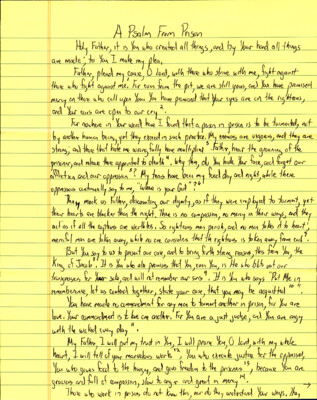 A Psalm From Prison
Holy Father, it is You who created all things, and by Your hand all things
are made; to You I make my plea,
Father, plead my cause, O Lord, with those who strive with me, fight against
those who fight against me. For even from the pit, we are still yours, and You have promised
mercy on those who call upon You. You have promised that Your eyes are on the righteous,
and Your ears are open to our cry.
For nowhere in Your word have I found that a person in prison is to be tormented
by another human being, yet they in such practice. My enemies are vigorous, and they are
strong, and those that hate me wrongfully have multiplied. Father, hear the groaning of the
prisoner, and release those appointed to death. Why then, do You hide Your face, and forget our
affliction and our oppression? My tears have been my food day and night, while these
oppressors continually say to me, "Where is your God?"
They mock us Father, discounting our dignity, as if they were to torment, yet
their hearts are blacker than the night. There is no compassion, no mercy in their ways, and they
act as if all the captives are worthless. So righteous men perish, and no man takes it to heart,
merciful men are taken away, while no one considers that the righteous is taken away from evil.
But You say to us to present our case, and to bring forth strong reasons, this from You, the
King of Jacob. It is You who promises that You, even You, is He who blots out our
transgressions for Your sake, and will not remember our sins. It is You who says "Put Me in
remembrance, let us contend together, state your case, that you may be acquitted".
You have made no commandment for any man to torment another in prison, for You are
love. Your commandment is to love one another. For You are a just judge, and You are angry
with the wicked every day.
My Father, I will put my trust in You, I will praise You, O Lord, with my whole
heart, I will tell of your marvelous works. You who execute justice for the oppressed,
You who gives food to the hungry, and gives freedom to the prisoners, because You are
gracious and full of compassion, slow to anger and great in mercy.
Those who work in prison do not know this, nor do they understand Your ways. They